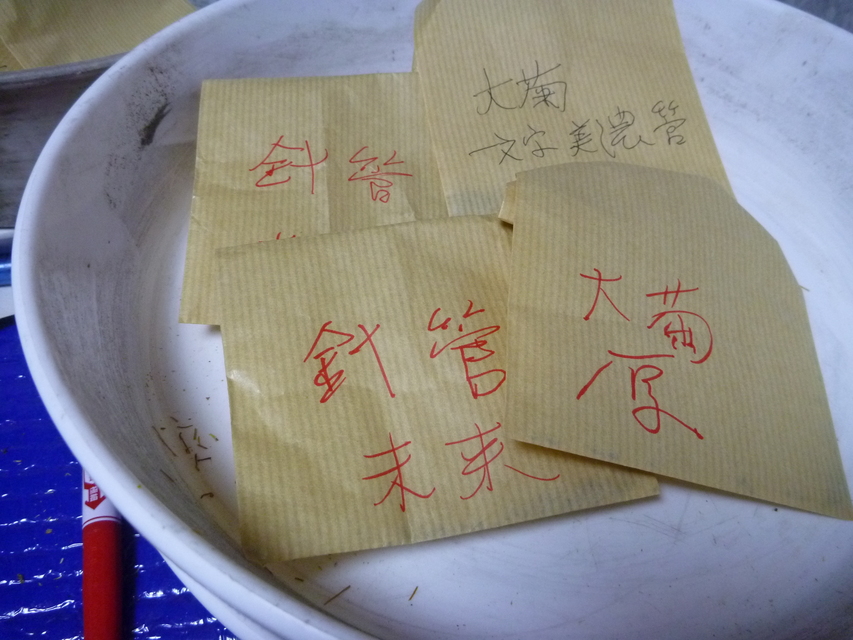 大菊
文字美濃管
針管
大菊
厚
針管
未来